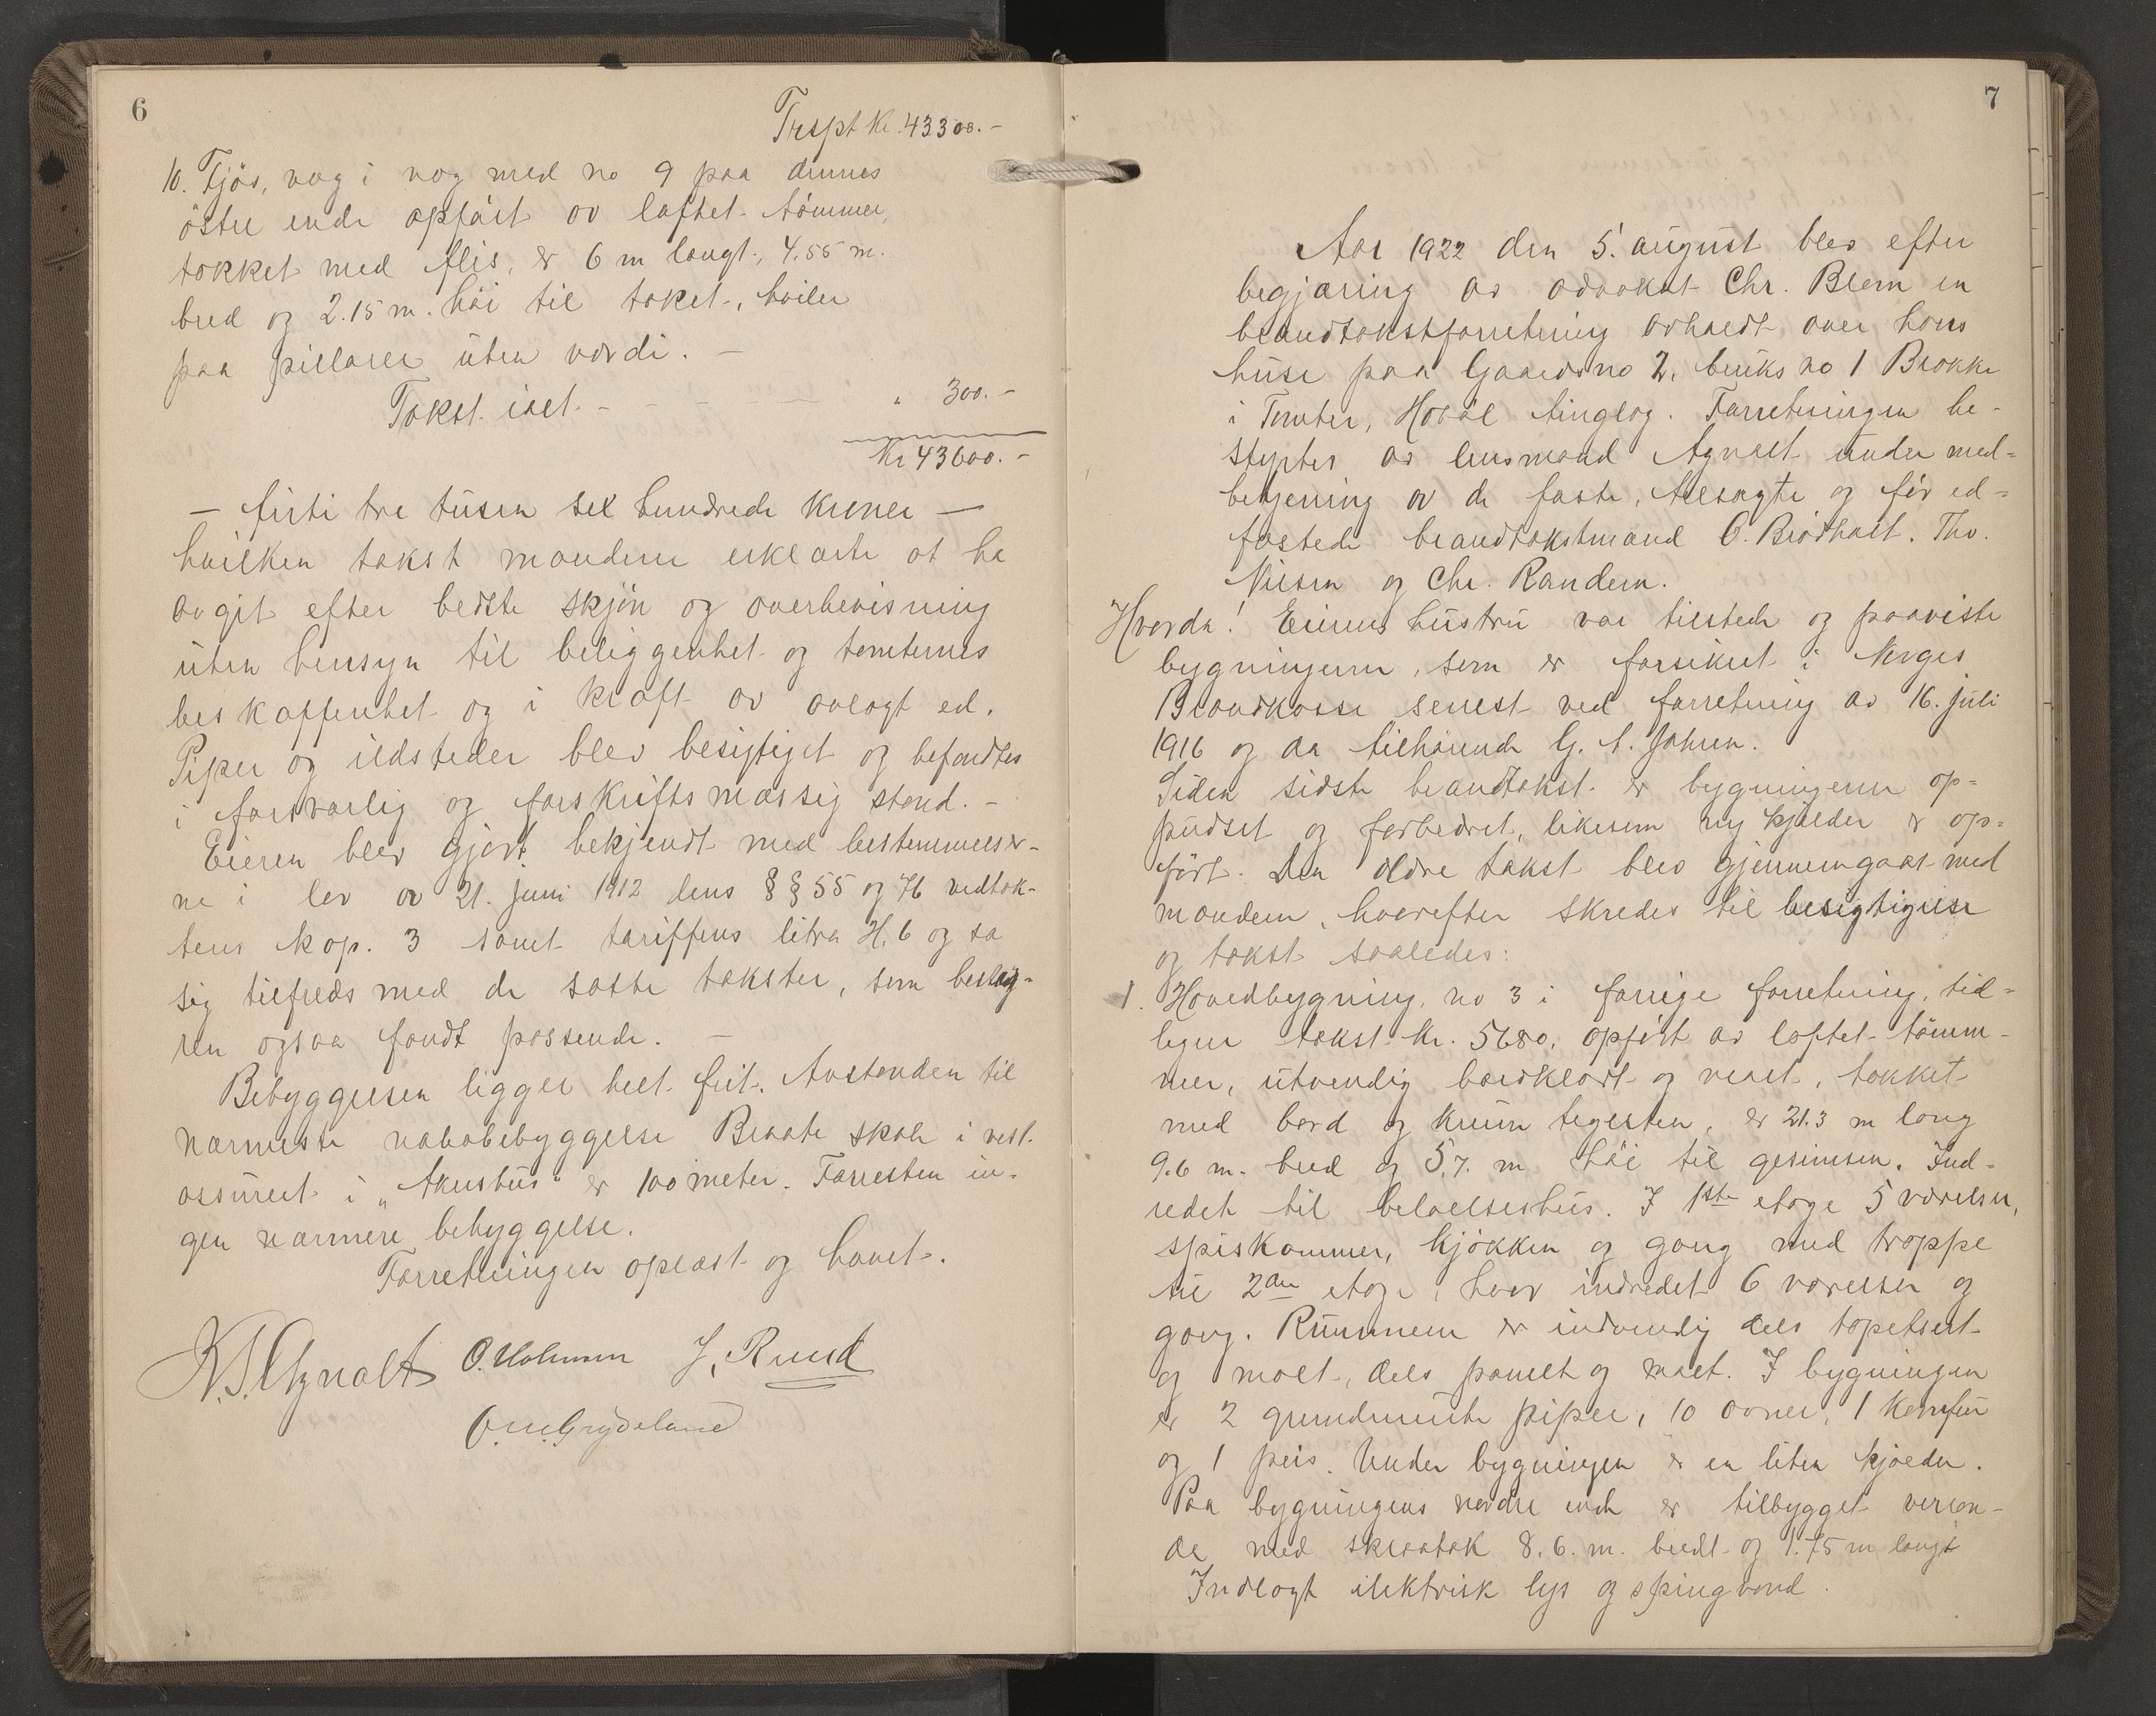 6
Trspt Kr. 43300.-
10. Fjös, væg i væg med no 9 paa dennes
östre ende opført av laftet tömmer,
tækket med flis, er 6 m langt, 4.55 m.
bred og 2.15 m. höi til taket, hviler
paa pillarer uten værdi. -
Takst ialt - - - - " 300.-
Kr 43600.-
- firti tre tusen sex hundrede kroner -
hvilken takst mændene erklærte at ha
avgit efter bedste skjön og overbevisning
uten hensyn til beliggenhet og tomternes
beskaffenhet og i kraft av avlagt ed.
Piper og ildsteder blev besigtiget og befandtes
i forsvarlig og forskriftsmæssig stand. -
Eieren blev gjort bekjendt med bestemmelser-
ne i lov av 21. juni 1912 dens § § 55 og 76 vedtæk-
tens kap. 3 samt tariffens litra H. 6 og sa
sig tilfreds med de satte takster, som besty-
ren ogsaa fandt passende. -
Bebyggelsen ligger helt frit. Avstanden til
nærmeste nabobebyggelse Braate skole i vest
assurert i "Akershus" er 100 meter. Forresten in-
gen nærmere bebyggelse.
Forretningen oplæst og hævet.
K. S. Agnalt O. Holmen J. Ruud
O. M. Grydeland
7
Aar 1922 den 5. august blev efter
begjæring av advokat Chr. Blom en
brandtakstforretning avholdt over hans
huse paa Gaardsno 2, bruks no 1 Brokke
i Tomter, Hobøl tinglag. Forretningen be-
styrtes av lensmand Agnalt under med-
betjening av de faste, tilsagte og før ed-
fæstede brandtakstmænd O. Brødholt, Thv.
Nilsen og Chr. Randem.
Hvorda! Eierens hustru var tilstede og paaviste
bygningerne, som er forsikret i Norges
Brandkasse senest ved forretning av 16. juli
1916 og da tilhørende G. A. Jahren.
Siden sidste brandtakst er bygningerne op-
pudset og forbedret, likesom ny kjælder er op-
ført. Den ældre takst blev gjennemgaat med
mændene, hvorefter skredes til besigtigelse
og takst saaledes:
1. Hovedbygning, no 3 i forrige forretning, tid-
ligere takst kr. 5680, opført av laftet tömm-
mer, utvendig bordklædt og malt, tækket
med bord og krum teglsten, er 21.3 m lang
9.6 m. bred og 5.7. m höi til gesimsen. Ind-
redet til beboelseshus. I 1ste etage 5 værelser,
spiskammer, kjøkken og gang med trappe
til 2den etage, hvor indredet 6 værelser og
gang. Rummene er indvendig dels tapetsert
og malt, dels panelt og malt. I bygningen
er 2 grundmurte piper, 10 ovner, 1 komfur
og 1 peis. Under bygningen er en liten kjælder.
Paa bygningens nordre ende er tilbygget veran-
da med skraatak 8.6. m. bredt og 1.75 m langt
Indlagt elektrisk lys og springvand.